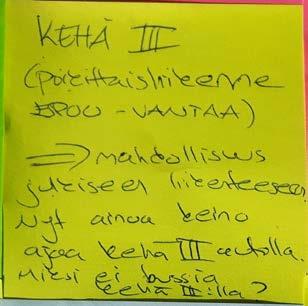 KEHÄ III
(poikittaisliikenne
ESPOO - VANTAA)
⇒ mahdollisuus
julkiseen liikenteeseen
Nyt ainoa keino
ajaa kehä III autolla.
Miksi ei bussia
kehä III:lla?